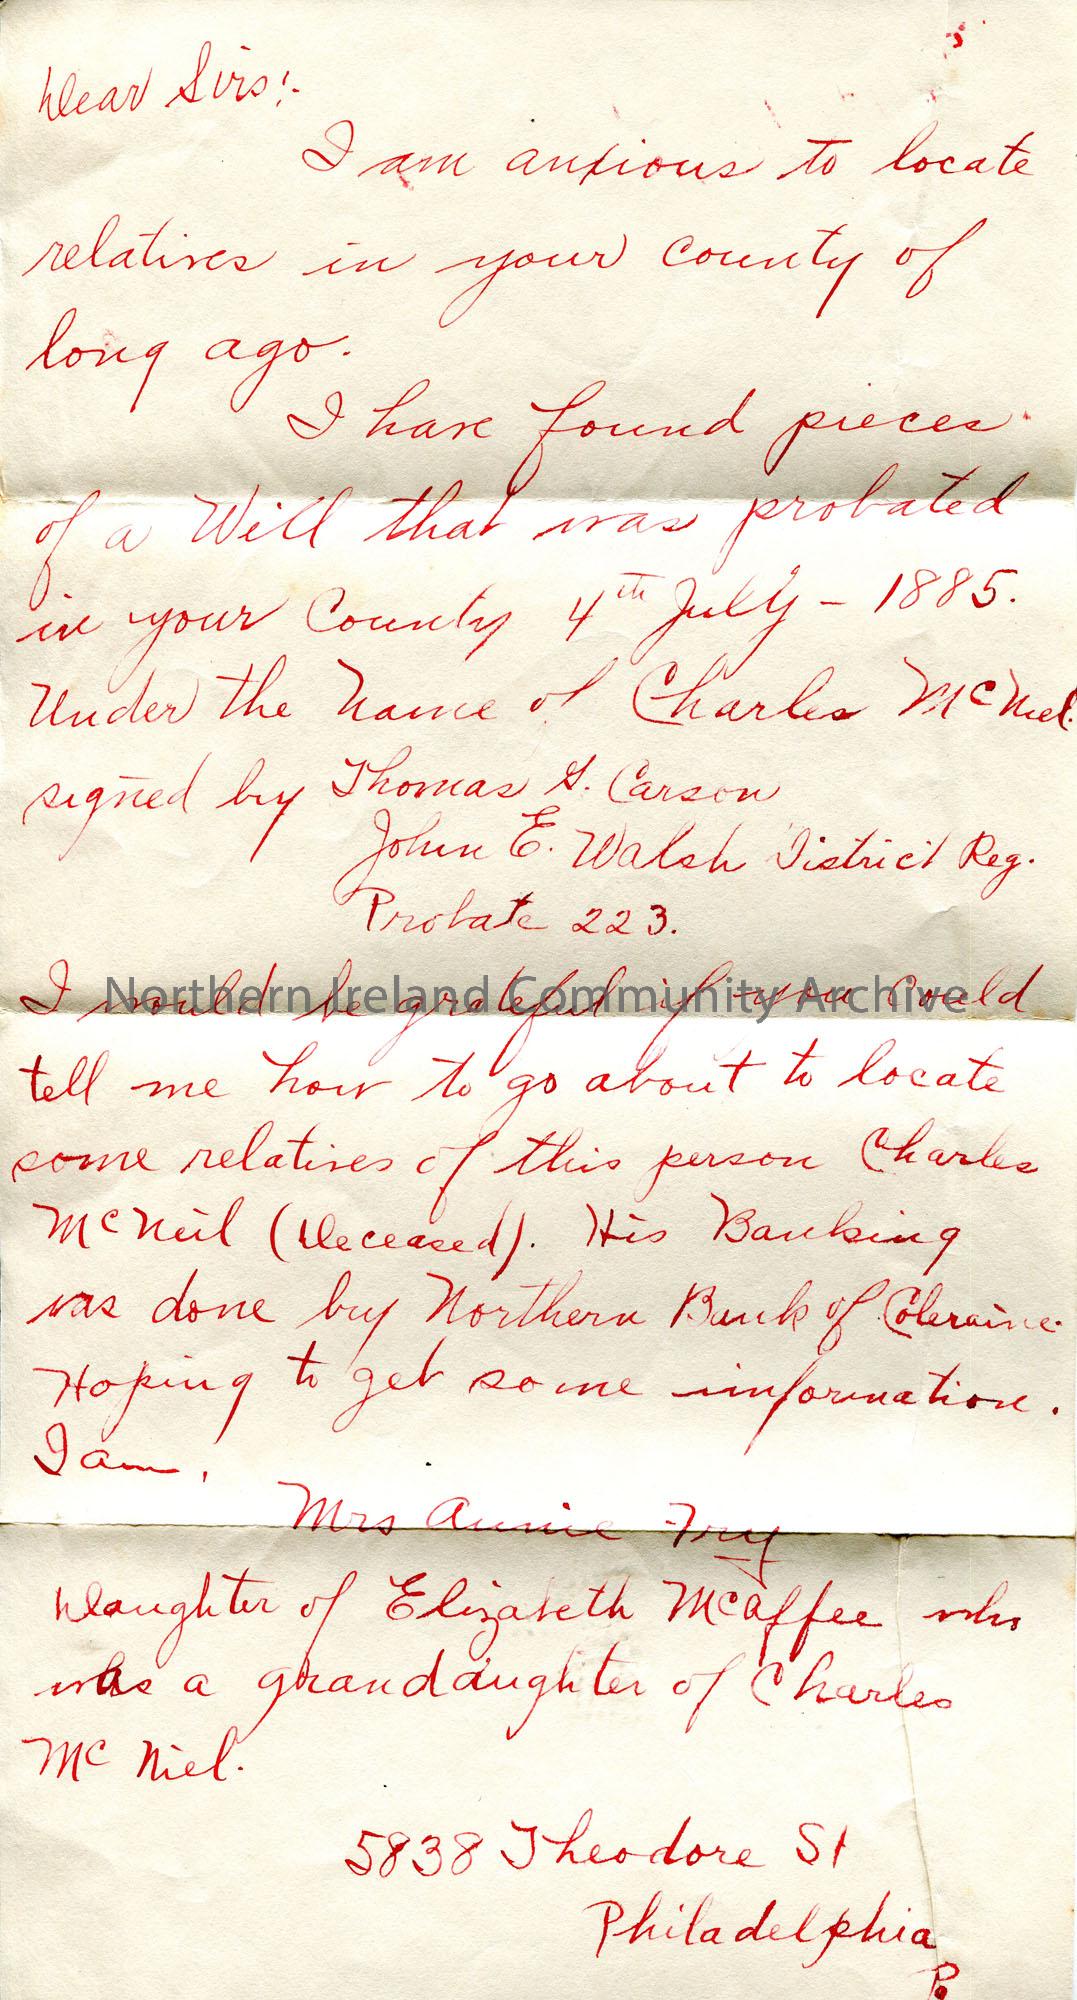 Dear Sirs:-
I am anxious to locate
relatives in your county of
long ago.
I have found pieces
of a Will that was probated
in your County 4th July - 1885.
Under the Name of Charles McNiel.
signed by Thomas G. Carson
John E. Walsh District Reg.
Probate 223.
I would be grateful if you could
Northern Ireland Community Archive
tell me how to go about to locate
some relatives of this person Charles
McNeil (Deceased). His Banking
was done by Northern Bank of Coleraine.
Hoping to get some information.
I am,
Mrs Annie Fry
Daughter of Elizabeth McAffee who
was a granddaughter of Charles
Mc Niel.
5838 Theodore St
Philadelphia
Pa